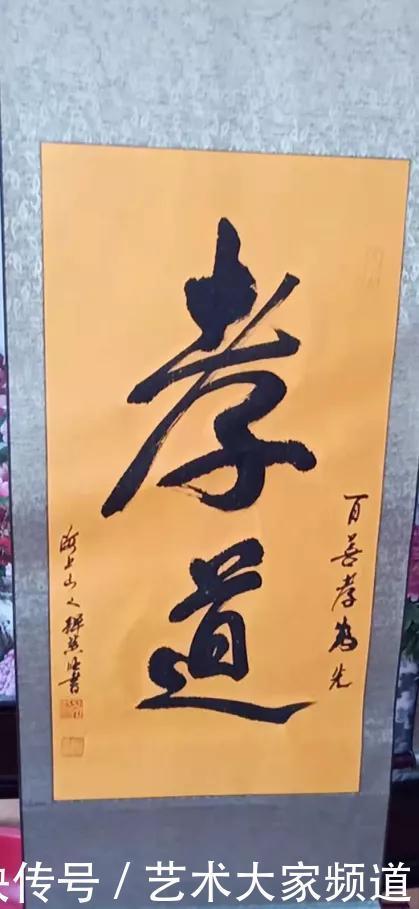 孝道
百善孝為先
海上山人
書
快传号 / 艺术大家频道